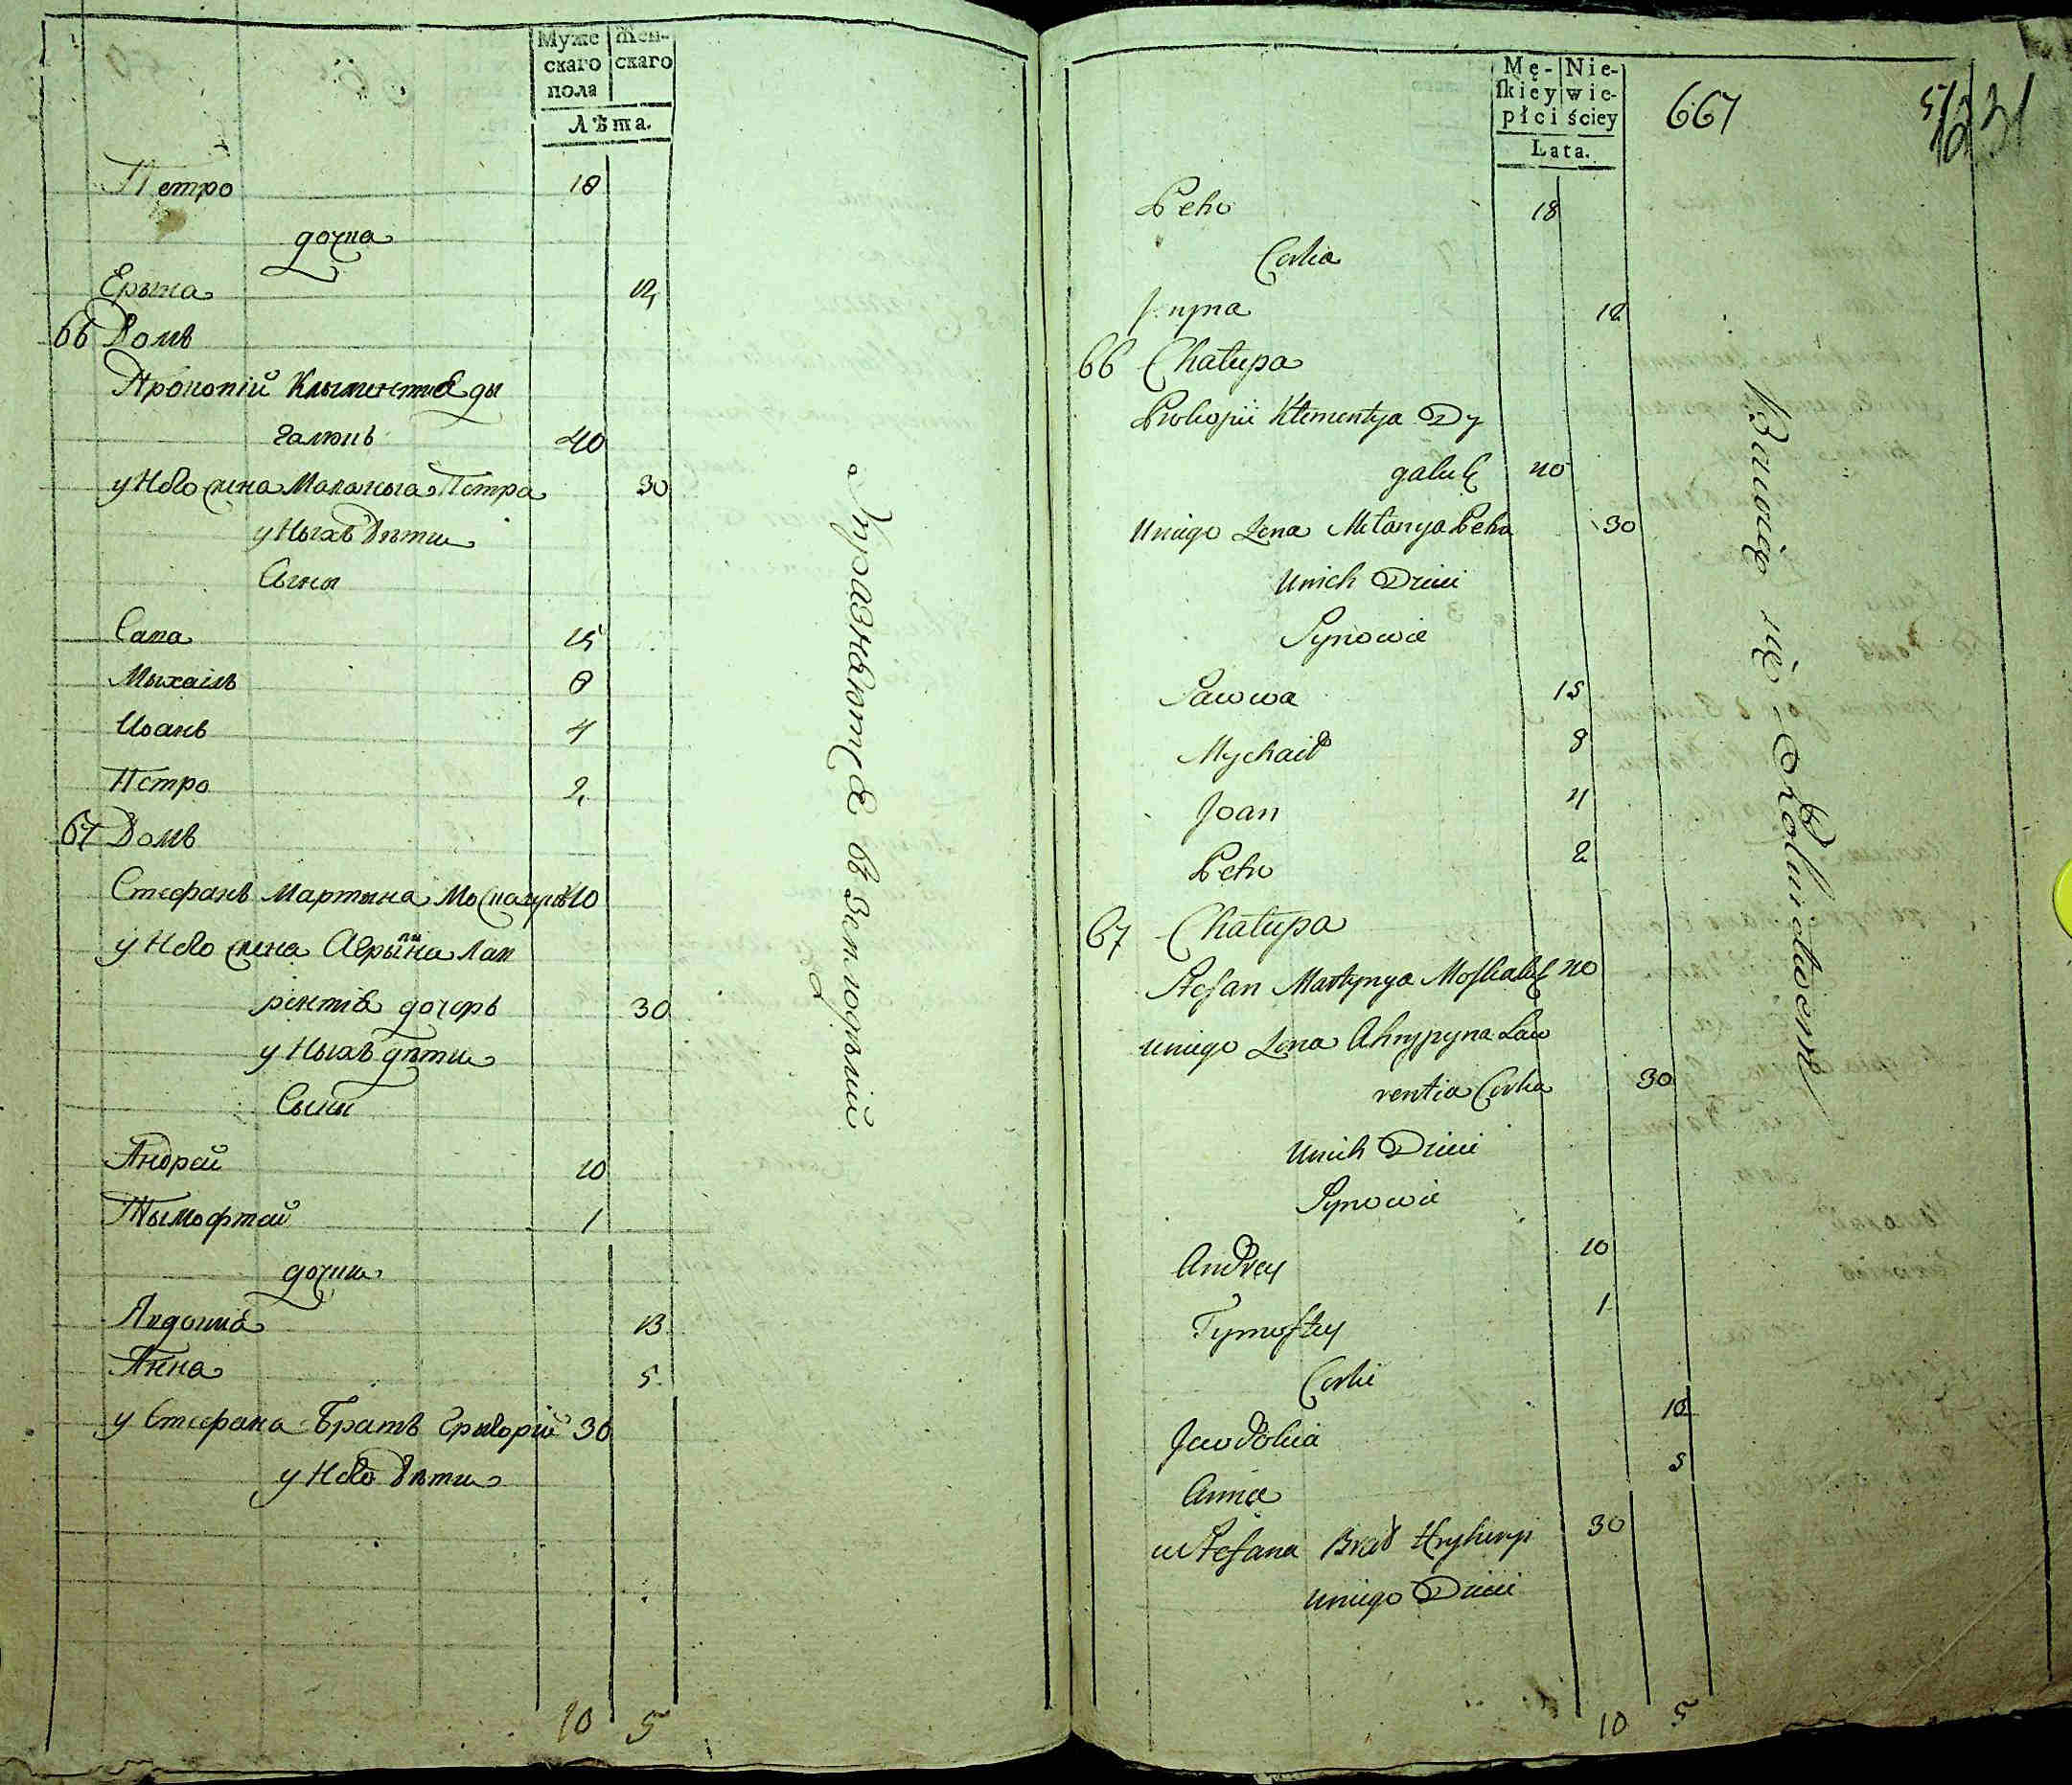 Муже
скаго
пола
Жен-
скаго
Лѣта.
Петро 18
дочка
Ерына 12
66 Домъ
Прокопій Клыментіѧ ды
галюкъ 40
у Него жена Маланыа Петра 30
у Ныхъ дѣти
Сыны
Сава 15
Мыхаілъ 8
Иоанъ 4
Петро 2
67 Домъ
Стефанъ Мартына Москалукъ 40
у Него жена Агрыпина Лав
рентіѧ дочерь 30
у Ныхъ дѣти
Сыны
Андрей 10
Тымофтей 1
дочки
Явдокиѧ 13
Анна 5
у Стефана Братъ Грыгорій 30
у Него дѣти
10 5
Упражнѣютсѧ въ Земледѣліи
Mę-
skiey
płci
Nie-
wie-
ściey
Lata.
667
Petro 18
Corka
Jryna 12
66 Chałupa
Prokopii Klementya Dy
galuk 40
Uniego Zona Mełanya Petra 30
Unich Dzieci
Synowie
Sawwa 15
Mychaił 8
Joan 4
Petro 2
67 Chałupa
Stefan Martynya Moskaluk 40
Uniego Zona Ahrypyna Law
rentia Corka 30
Unich Dzieci
Synowie
Andrey 10
Tymoftey 1
Corki
Jawdokia 13
Anna 5
u Stefana Brat Hryhoryi 30
Uniego Dzieci
10 5
Bawią się Rolnictwem